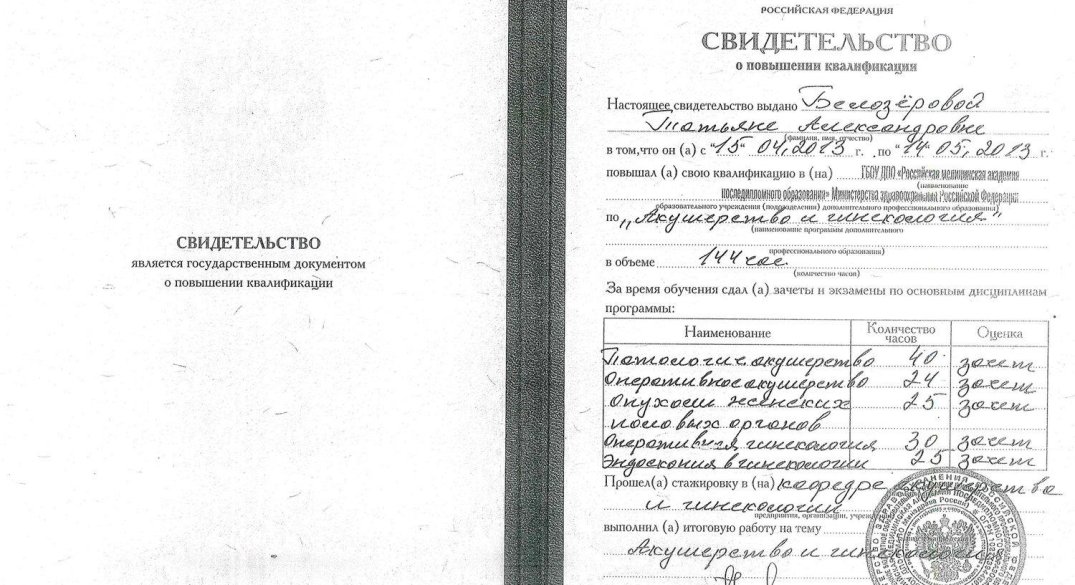 СВИДЕТЕЛЬСТВО
является государственным документом
о повышении квалификации
РОССИЙСКАЯ ФЕДЕРАЦИЯ
СВИДЕТЕЛЬСТВО
о повышении квалификации
Настоящее свидетельство выдано Белозёровой
Татьяне Александровне
(фамилия, имя, отчество)
в том, что он (а) с "15" 04, 2013 г. по "14" 05, 2013 г.
повышал (а) свою квалификацию в (на) ГБОУ ДПО «Российская медицинская академия
(наименование
последипломного образования» Министерства здравоохранения Российской Федерации
образовательного учреждения (подразделения) дополнительного профессионального образования)
по „Акушерство и гинекология"
(наименование программы дополнительного
профессионального образования)
в объеме 144 час.
(количество часов)
За время обучения сдал (а) зачеты и экзамены по основным дисциплинам
программы:
Наименование Количество часов Оценка
Патологич. акушерство 40 зачет
Оперативное акушерство 24 зачет
Опухоли женских 25 зачет
половых органов
Оперативная гинекология 30 зачет
Эндоскопия в гинекологии 25 зачет
Прошел(а) стажировку в (на) кафедре акушерства
и гинекологии
предприятия, организации,
выполнил (а) итоговую работу на тему
Акушерство и гинекология